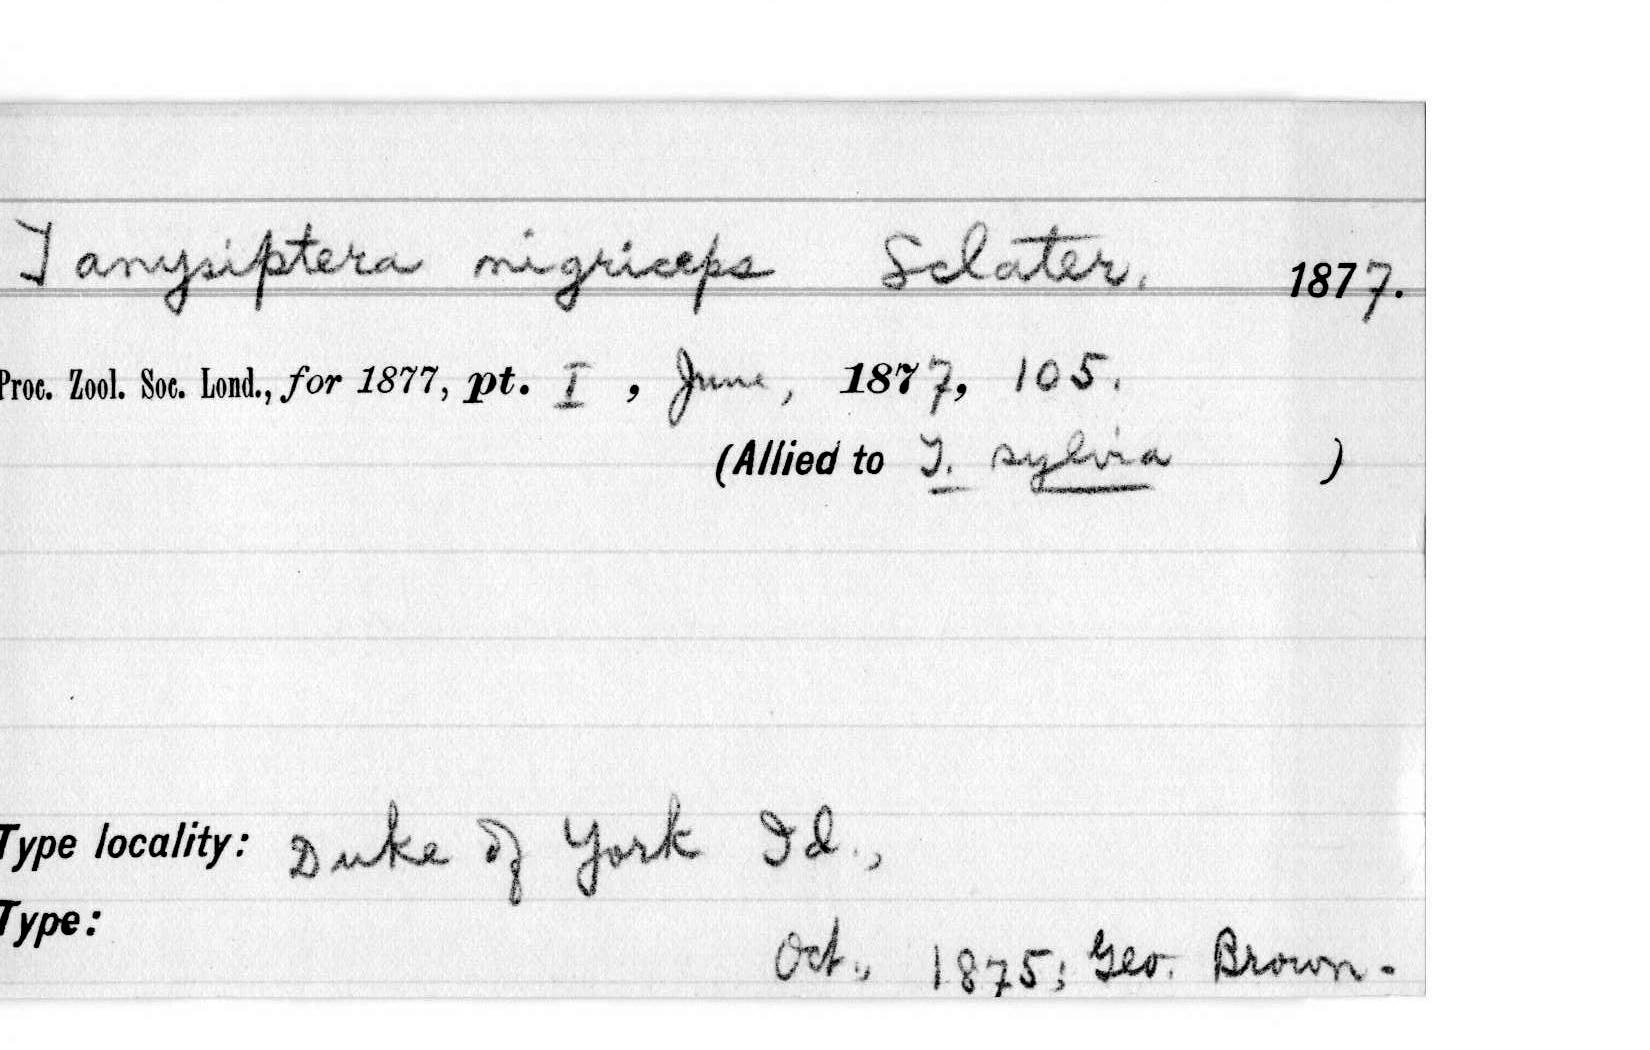 Tanysiptera nigriceps Sclater. 1877.
Proc. Zool. Soc. Lond., for 1877, pt. I, June, 1877, 105.
(Allied to T. sylvia )
Type locality: Duke of York Id.,
Type:
Oct., 1875; Geo. Brown.